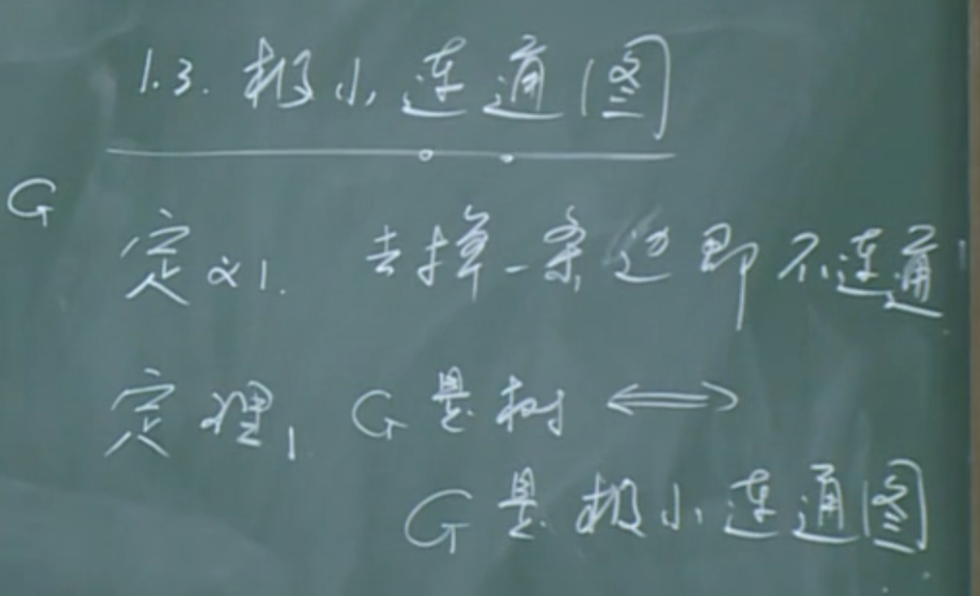 1.3. 极小连通图
G
定义1. 去掉一条边即不连通
定理1 G是树 ⟺
G是极小连通图